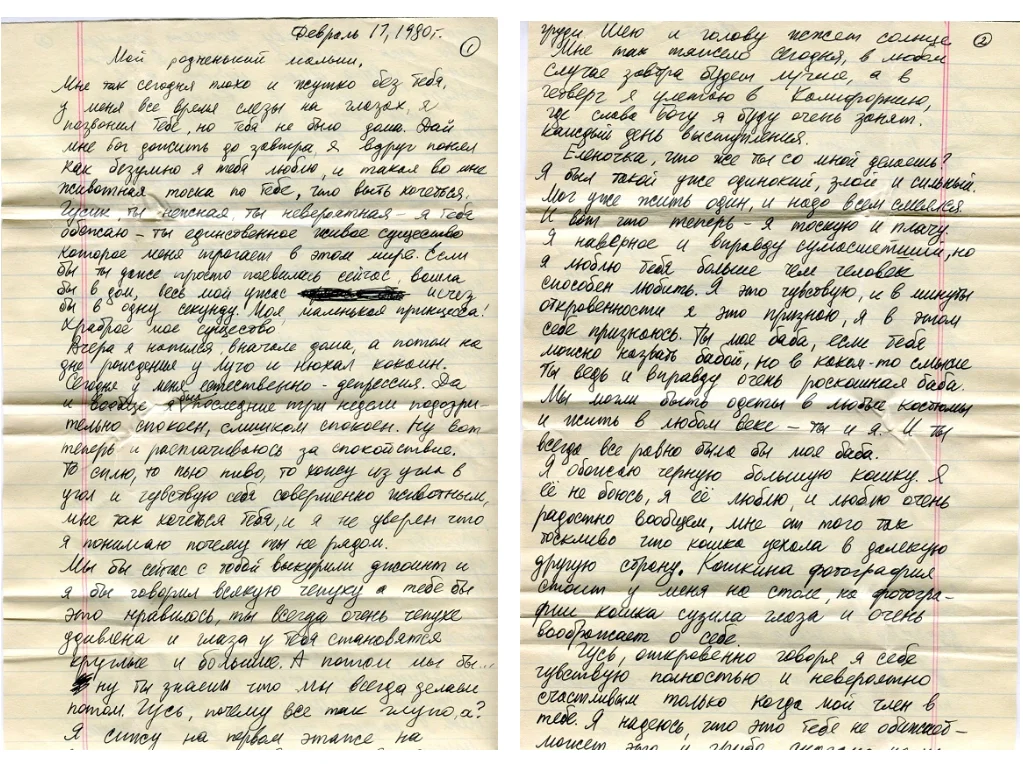 Февраль 17, 1980г.
①
Мой родненький малыш,
Мне так сегодня плохо и жутко без тебя,
у меня все время слезы на глазах, я
позвонил тебе, но тебя не было дома. Дай
мне бог дожить до завтра. Я вдруг понял
как безумно я тебя люблю, и такая во мне
животная тоска по тебе, что выть хочеться.
Гусик, ты нежная, ты невероятная – я тебя
обожаю – ты единственное живое существо
которое меня трогает в этом мире. Если
бы ты даже просто появилась сейчас, вошла
бы в дом, весь мой ужас исчез
бы в одну секунду. Моя маленькая принцесса!
Храброе мое существо,
Вчера я напился, вначале дома, а потом на
дне рождения у Луго и нюхал кокаин.
Сегодня у меня естественно – депрессия. Да
и вообще, я был последние три недели подозри-
тельно спокоен, слишком спокоен. Ну вот
теперь и расплачиваюсь за спокойствие.
То сплю, то пью пиво, то хожу из угла в
угол и чувствую себя совершенно животным,
мне так хочеться тебя, и я не уверен что
я понимаю почему ты не рядом.
Мы бы сейчас с тобой выкурили джоинт и
я бы говорил всякую чепуху а тебе бы
это нравилось, ты всегда очень чепухе
удивлена и глаза у тебя становятся
круглые и большие. А потом мы бы...
ну ты знаешь что мы всегда делаем
потом. Гусь, почему все так глупо, а?
Я сижу на первом этаже на
②
груди. Шею и голову жжет солнце
Мне так тяжело сегодня, в любом
случае завтра будет лучше, а в
четверг я улетаю в Калифорнию,
где слава богу я буду очень занят.
Каждый день выступления.
Еленочка, что же ты со мной делаешь?
Я был такой уже одинокий, злой и сильный.
Мог уже жить один, и надо всем смеялся.
И вот что теперь – я тоскую и плачу.
Я наверное и вправду сумасшетший, но
я люблю тебя больше чем человек
способен любить. Я это чувствую, и в минуты
откровенности я это признаю, я в этом
себе признаюсь. Ты моя баба, если тебя
можно назвать бабой, но в каком-то смысле
ты ведь и вправду очень роскошная баба.
Мы могли быть одеты в любые костюмы
и жить в любом веке – ты и я. И ты
всегда все равно была бы моя баба.
Я обожаю черную большую кошку. Я
её не боюсь, я её люблю, и люблю очень
радостно вообщем, мне от того так
тоскливо что кошка уехала в далекую
другую сторону. Кошкина фотография
стоит у меня на столе, на фотогра-
фии кошка сузила глаза и очень
воображает о себе.
Гусь, откровенно говоря я себя
чувствую полностью и невероятно
счастливым только когда мой член в
тебе. Я надеюсь, что это тебе не обижает –
может это и грубо